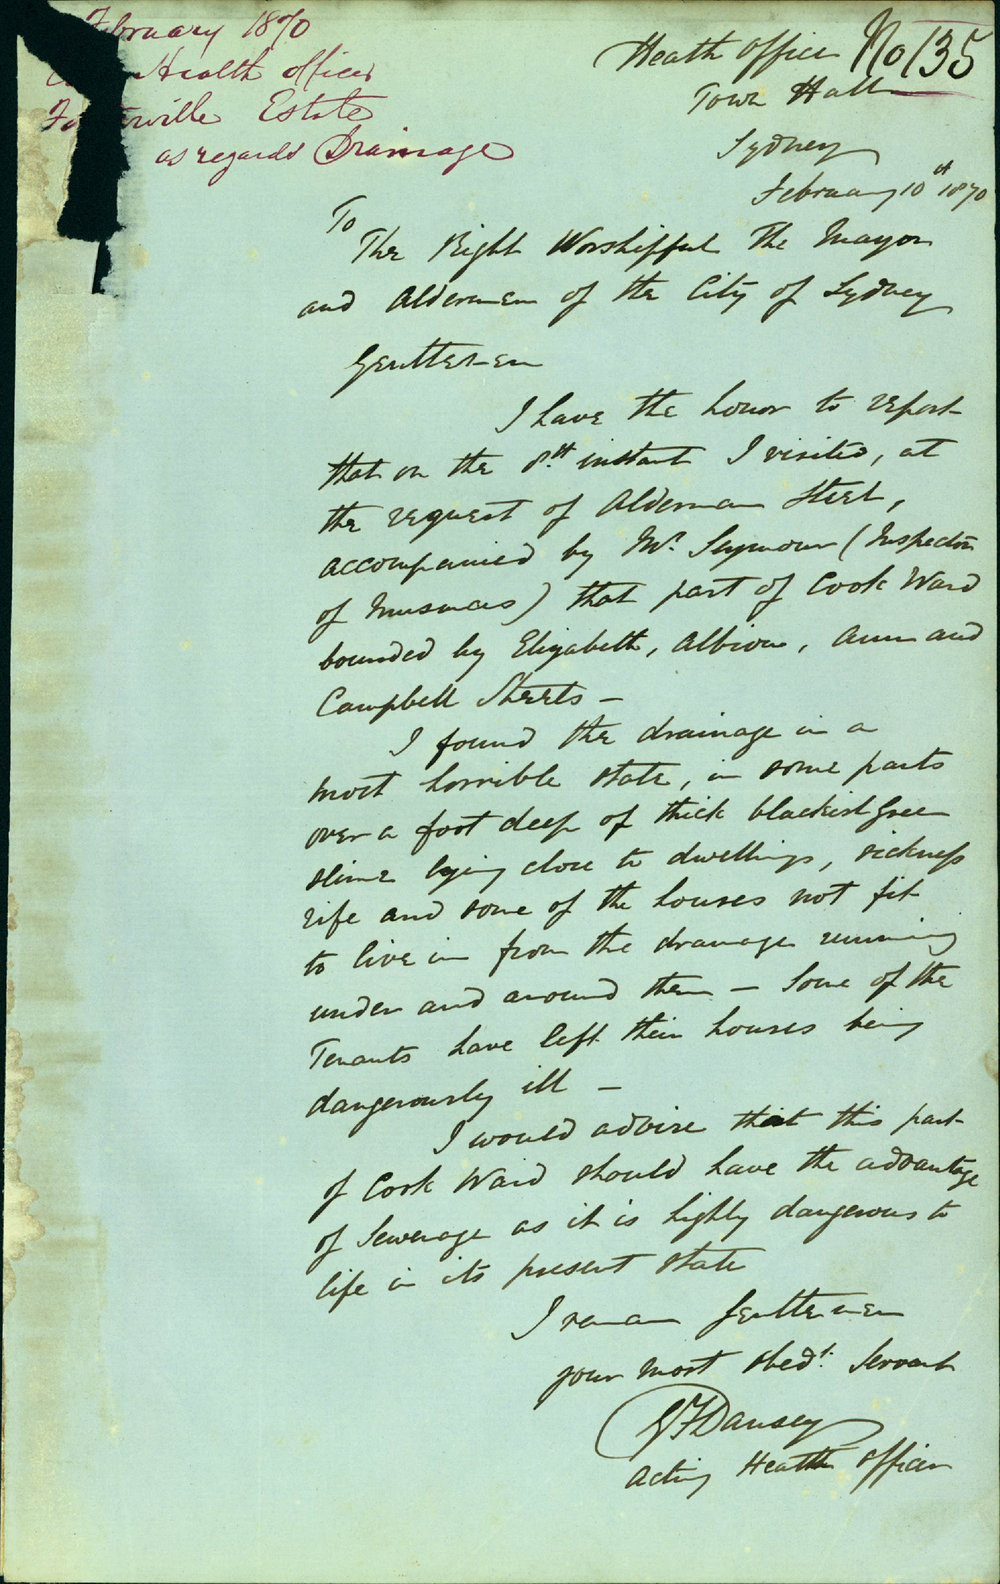 February 1870
Health officer
ville Estate
as regards Drainage
No 135
Health Office
Town Hall
Sydney
February 10th 1870
To
The Right Worshipful The Mayor
and Aldermen of the City of Sydney
Gentlemen
I have the honor to report
that on the 8th instant I visited, at
the request of Alderman Steel,
accompanied by Mr. Seymour (Inspector
of Nusances) that part of Cook Ward
bounded by Elizabeth, Albion, Ann and
Campbell Streets -
I found the drainage in a
most horrible state, in some parts
over a foot deep of thick blackish Green
slime lying close to dwellings, sickness
rife and some of the houses not fit
to live in from the drainage running
under and around them - Some of the
Tenants have left their houses being
dangerously ill -
I would advise that this part
of Cook Ward should have the advantage
of Sewerage as it is highly dangerous to
life in its present state
I remain Gentlemen
your most obedt. Servant
G F Dansey
Acting Health Officer